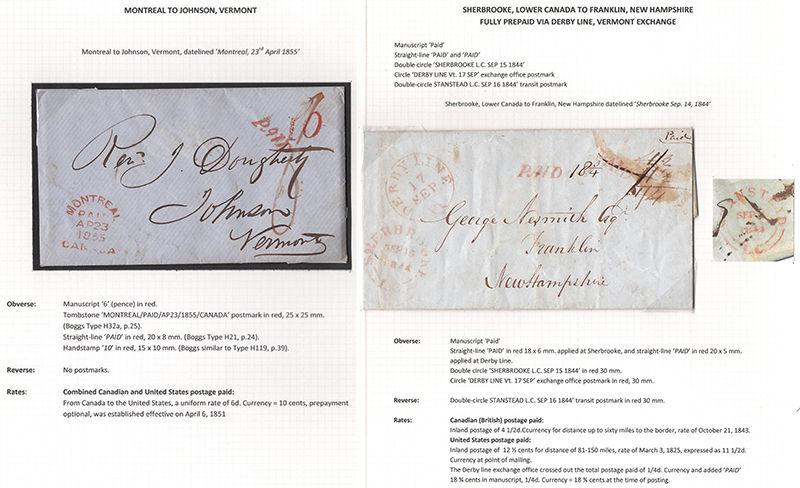 MONTREAL TO JOHNSON, VERMONT
Montreal to Johnson, Vermont, datelined 'Montreal, 23rd April 1855'
PAID
6
Revd. J. Dougherty
Johnson
Vermont
MONTREAL
PAID
AP23
1855
CANADA
Obverse: Manuscript '6' (pence) in red.
Tombstone 'MONTREAL/PAID/AP23/1855/CANADA' postmark in red, 25 x 25 mm.
(Boggs Type H32a, p.25).
Straight-line 'PAID' in red, 20 x 8 mm. (Boggs Type H21, p.24).
Handstamp '10' in red, 15 x 10 mm. (Boggs similar to Type H119, p.39).
Reverse: No postmarks.
Rates: Combined Canadian and United States postage paid:
From Canada to the United States, a uniform rate of 6d. Currency = 10 cents, prepayment
optional, was established effective on April 6, 1851
SHERBROOKE, LOWER CANADA TO FRANKLIN, NEW HAMPSHIRE
FULLY PREPAID VIA DERBY LINE, VERMONT EXCHANGE
Manuscript 'Paid'
Straight-line 'PAID' and 'PAID'
Double circle 'SHERBROOKE L.C. SEP 15 1844'
Circle 'DERBY LINE Vt. 17 SEP' exchange office postmark
Double-circle 'STANSTEAD L.C. SEP 16 1844' transit postmark
Sherbrooke, Lower Canada to Franklin, New Hampshire datelined 'Sherbrooke Sep. 14, 1844'
Paid
DERBY LINE
17
SEP
PAID 18¾
George Nesmith Esq
Franklin
New Hampshire
SHERBROOKE
SEP 15
1844
Obverse: Manuscript 'Paid'
Straight-line 'PAID' in red 18 x 6 mm. applied at Sherbrooke, and straight-line 'PAID' in red 20 x 5 mm.
applied at Derby Line.
Double circle 'SHERBROOKE L.C. SEP 15 1844' in red 30 mm.
Circle 'DERBY LINE Vt. 17 SEP' exchange office postmark in red, 30 mm.
Reverse: Double-circle 'STANSTEAD L.C. SEP 16 1844' transit postmark in red 30 mm.
Rates: Canadian (British) postage paid:
Inland postage of 4 1/2d.Ccurrency for distance up to sixty miles to the border, rate of October 21, 1843.
United States postage paid:
Inland postage of 12 ½ cents for distance of 81-150 miles, rate of March 3, 1825, expressed as 11 1/2d.
Currency at point of mailing.
The Derby line exchange office crossed out the total postage paid of 1/4d. Currency and added 'PAID'
18 ¾ cents in manuscript, 1/4d. Currency = 18 ¾ cents at the time of posting.